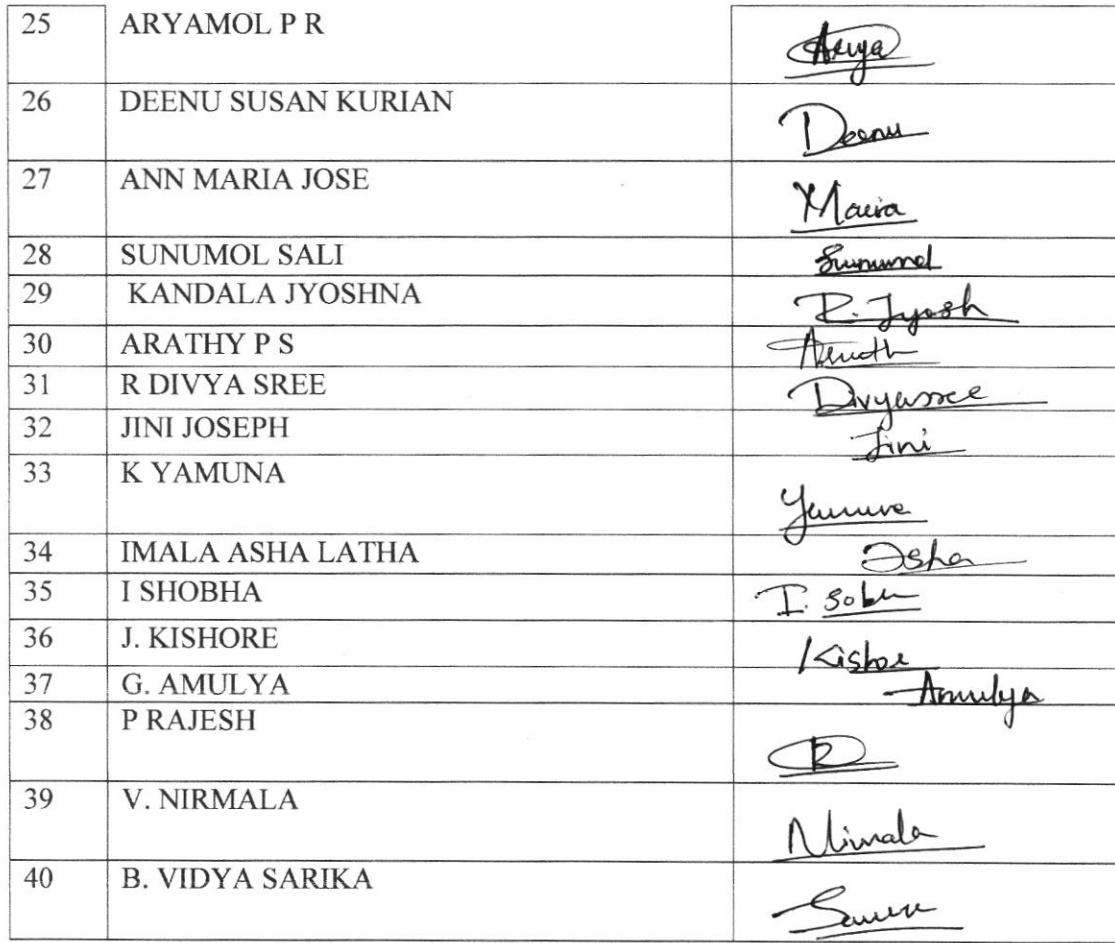 25 ARYAMOL P R Arya
26 DEENU SUSAN KURIAN Deenu
27 ANN MARIA JOSE Maria
28 SUNUMOL SALI Sunumol
29 KANDALA JYOSHNA R. Jyosh
30 ARATHY P S
31 R DIVYA SREE Divyasree
32 JINI JOSEPH Jini
33 K YAMUNA Yamuna
34 IMALA ASHA LATHA Asha
35 I SHOBHA I.
36 J. KISHORE Kishor
37 G. AMULYA Amulya
38 P RAJESH R
39 V. NIRMALA Nirmala
40 B. VIDYA SARIKA